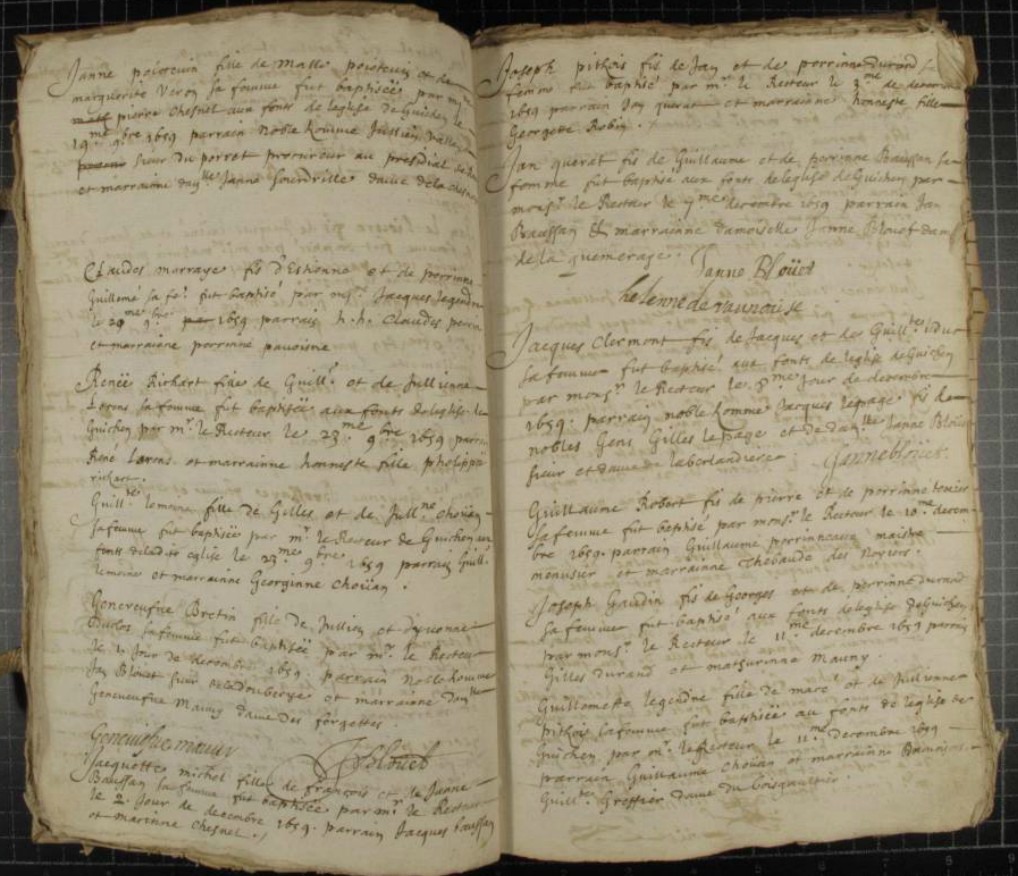 Janne poictevin fille de Malle poictevin et de
marguerite Veron sa femme fut baptisée par
pierre Chesnel aux fonts de leglise de Guichen le
19me 9bre 1659 parrain noble homme Jullien
sieur du porret procureur au presidial de
et marrainne dame de la Chesn
Claudes marraye fis d'Estienne et de perrinne
Guillemé sa fe. fut baptisé par mr. Jacques Legendre
le 29me 9bre 1659 parrain h. h. Claudes
et marrainne perrinne
Renée Richart fille de Guille. et de Jullienne
Lorens sa femme fut baptisée aux fonts de leglise de
Guichen par mr. le Recteur le 23me 9bre 1659 parrain
René Lorend et marrainne honneste fille philippe
richart.
Guill.tte Lemoine fille de Gilles et de Jull.ne Choüan
sa femme fut baptisée par mr. le Recteur de Guichen aux
fonts de ladite eglise le 23me 9bre 1659 parrain Guill.
Lemoine et marrainne Georginne Choüan.
Genevefve Bretin fille de Jullien et d'yvonne
Duclos sa femme fut baptisée par mr. le Recteur
le 1 Jour de decembre 1659. parrain Noble homme
Jan Blouet sieur et marrainne
Genevefve Mauny dame des forgettes.
Genevievfve mauny
J blouet
Jacquette michel fille de françois et de Janne
Baussan sa femme fut baptisée par mr. le Recteur
le 2 Jour de decembre 1659. parrain Jacques baussan
et marinne Chesnel.
Joseph pithois fis de Jan et de perrinne durand sa
femme fut baptisé par mr. le Recteur le 3me de decembre
1659 parrain Jan querat et marrainne honneste fille
Georgette Robin.
Jan querat fis de Guillaume et de perrinne Baussan sa
femme fut baptisé aux fonts de leglise de Guichen par
monsr. le Recteur le 7me decembre 1659 parrain Jan
Baussan & marrainne damoiselle Janne Blouet dame
de la quemerage.
Janne Bloüet
helenne de
Jacques Clermont fis de Jacques et de Guill.tte Duc
sa femme fut baptisé aux fonts de leglise de Guichen
par monsr. le Recteur le 8me Jour de decembre
1659. parrain noble homme Jacques lepage fis de
nobles Gens Gilles Lepage et de Janne Bloüet
sieur et dame de laberlandiere.
Janneblouet
Guillaume Robert fis de pierre et de perrinne
sa femme fut baptisé par monsr. le Recteur le 10me decem-
bre 1659. parrain Guillaume perrinneaux maistre
menusier et marrainne Thebaude des Noyers.
Joseph Gaudin fis de Georges et de perrinne durand
sa femme fut baptisé aux fonts de leglise de Guichen
par monsr. le Recteur le 11me decembre 1659 parrain
Gilles durand et mathurinne Mauny.
Guillemette Legendre fille de marc et de Jullienne
pithois sa femme fut baptisée au fonts de leglise de
Guichen par mr. le Recteur le 11me decembre 1659
parrain Guillaume Choüan et marrainne
Guill.tte Greffier dame du boisgaultier.